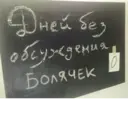 Дней без
обсуждения
Болячек
0